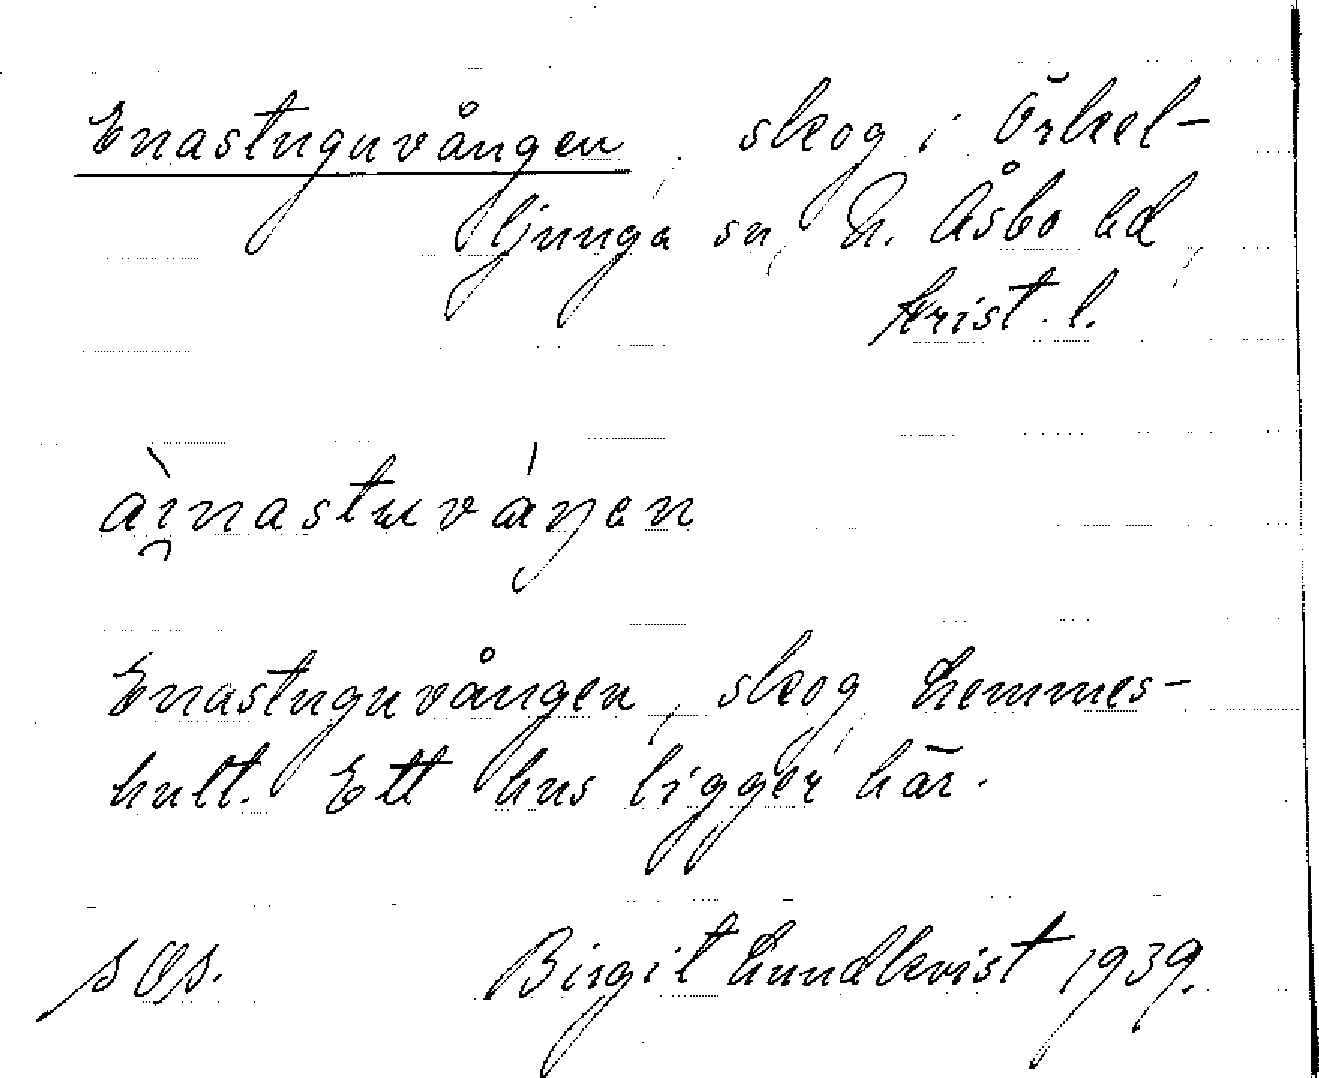 Enastuguvången, skog i Örkel-
ljunga sn, N. Åsbo hd,
Krist. l.
àı̯nastuváŋen
Enastuguvången, skog, Lemmes-
hult. Ett hus ligger här.
Birgit Lundkvist 1939.